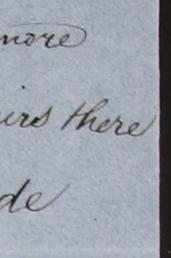 more
urs there
de